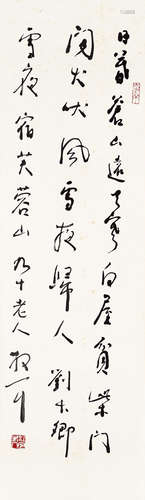 日暮蒼山遠天寒白屋貧柴門
聞犬吠風雪夜歸人劉長卿
雪夜宿芙蓉山九十老人散耳